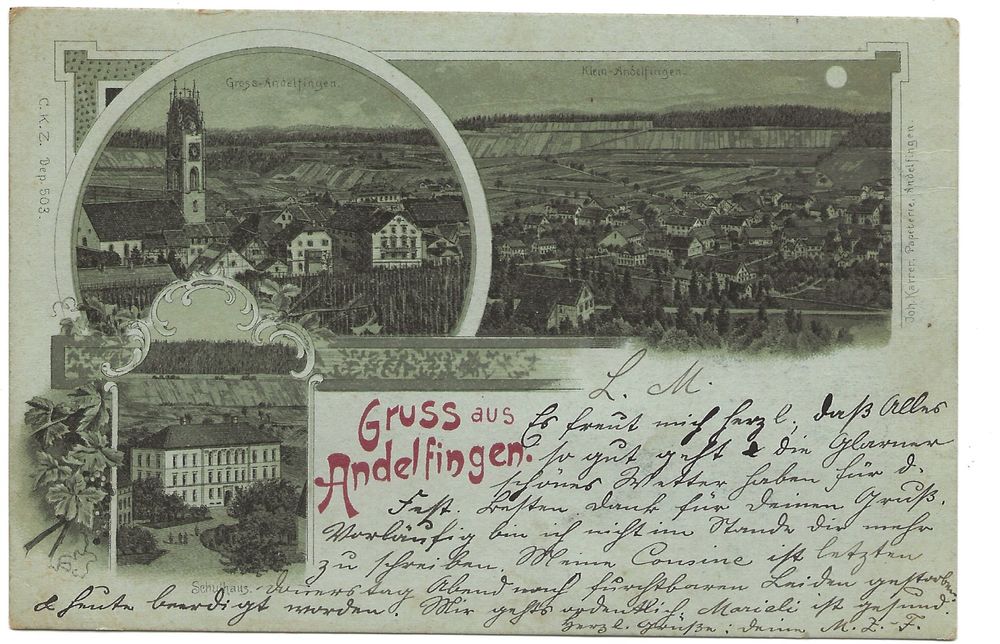 Gross-Andelfingen.
Klein-Andelfingen.
C.K.Z. Dep. 503.
Joh. Karrer, Papeterie, Andelfingen.
Schulhaus.
Gruss aus
Andelfingen.
L. M.
Es freut mich herzl, daß Alles
so gut geht & die Glarner
schönes Wetter haben für d.
Fest. Besten Dank für Deinen Gruß.
Vorläufig bin ich nicht im Stande dir mehr
zu schreiben. Meine Cousine ist letzten
Donnerstag Abend nach furchtbaren Leiden gestorben
& heute beerdigt worden. Mir gehts ordentlich. Marieli ist gesund.
Herzl. Grüße: deine M. Z.-F.